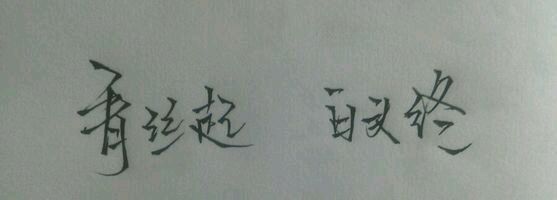 青丝起 白 终